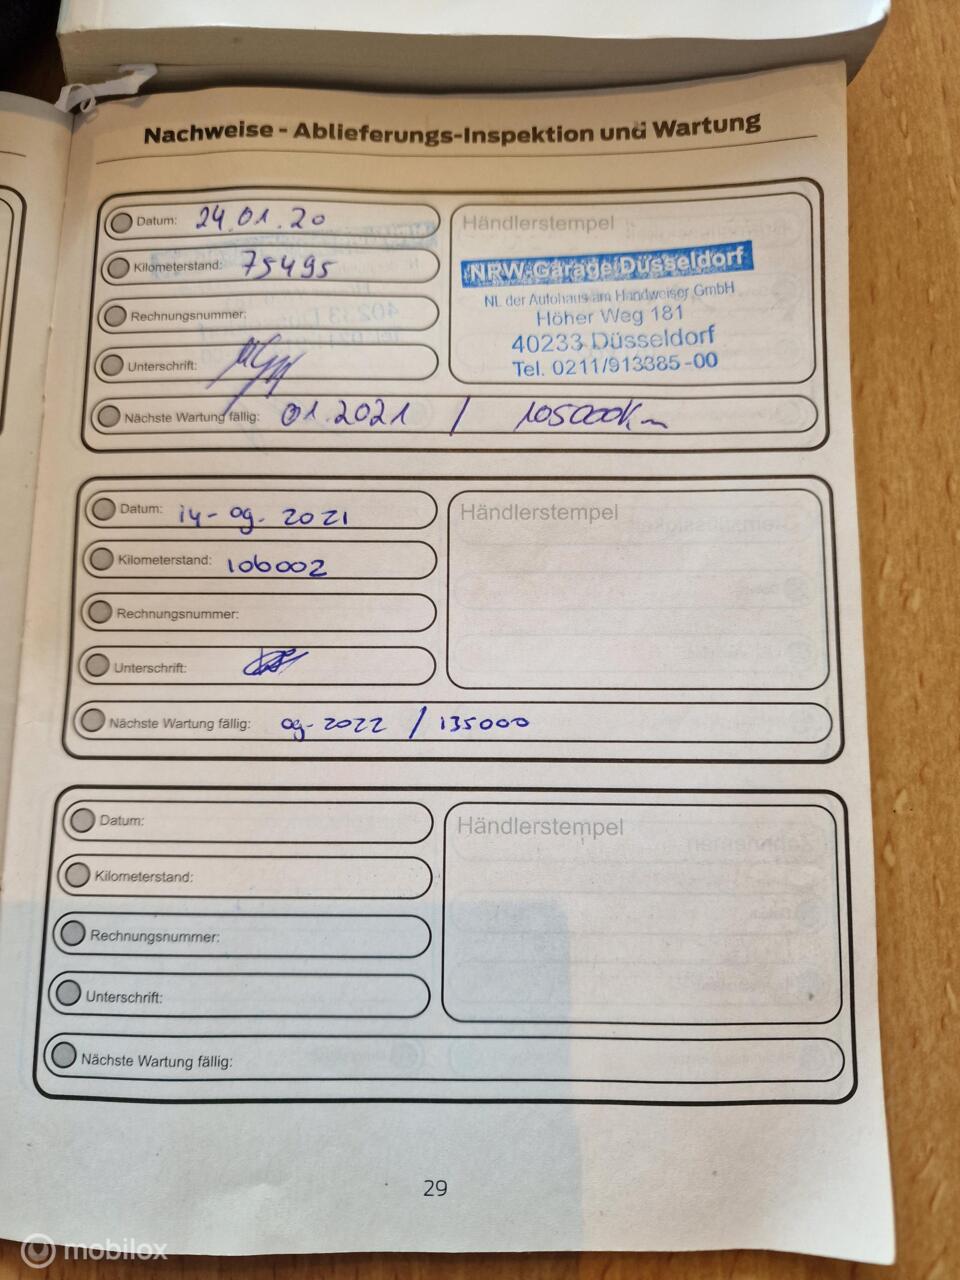 Nachweise - Ablieferungs-Inspektion und Wartung
Datum: 24.01.20
Kilometerstand: 75495
Rechnungsnummer:
Unterschrift:
Händlerstempel
NRW-Garage Düsseldorf
NL der Autohaus am Handweiser GmbH
Höher Weg 181
40233 Düsseldorf
Tel. 0211/913385-00
Nächste Wartung fällig: 01.2021 / 105000Km
Datum: 14-09-2021
Kilometerstand: 106002
Rechnungsnummer:
Unterschrift:
Händlerstempel
Nächste Wartung fällig: 09-2022 / 135000
Datum:
Kilometerstand:
Rechnungsnummer:
Unterschrift:
Händlerstempel
Nächste Wartung fällig:
29
mobilox